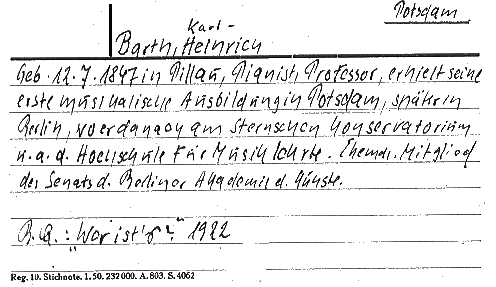 Potsdam
Karl-
Barth, Heinrich
Geb. 12.7.1847 in Pillau, Pianist, Professor, erhielt seine
erste musikalische Ausbildung in Potsdam, später in
Berlin, wo er danach am Sternschen Konservatorium
u. a. d. Hochschule für Musik lehrte. Ehem. Mitglied
des Senats d. Berliner Akademie d. Künste.
B.Q.: "Wer ist's?" 1922
Reg. 10. Stichnote. 1. 50. 232 000. A. 803. S. 4062